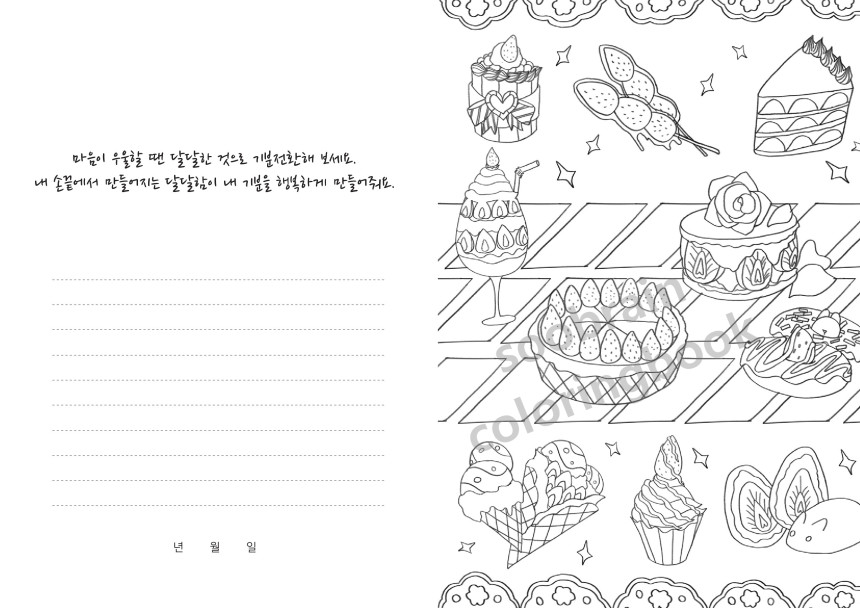 마음이 우울할 땐 달달한 것으로 기분전환해 보세요.
내 손끝에서 만들어지는 달달함이 내 기분을 행복하게 만들어줘요.
년 월 일
soobrain
coloringbook